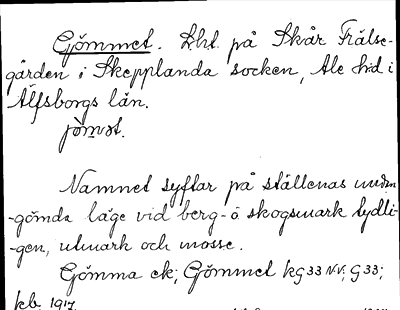 Gömmet. Lht. på Skår Frälse-
gården i Skepplanda socken, Ale hd i
Älfsborgs län.
jömət.
Namnet syftar på ställenas undan-
-gömda läge vid berg- o skogsmark tydli-
-gen, utmark och mosse.
Gömma ek; Gömmet kG33 NV; G33;
kb. 1917.